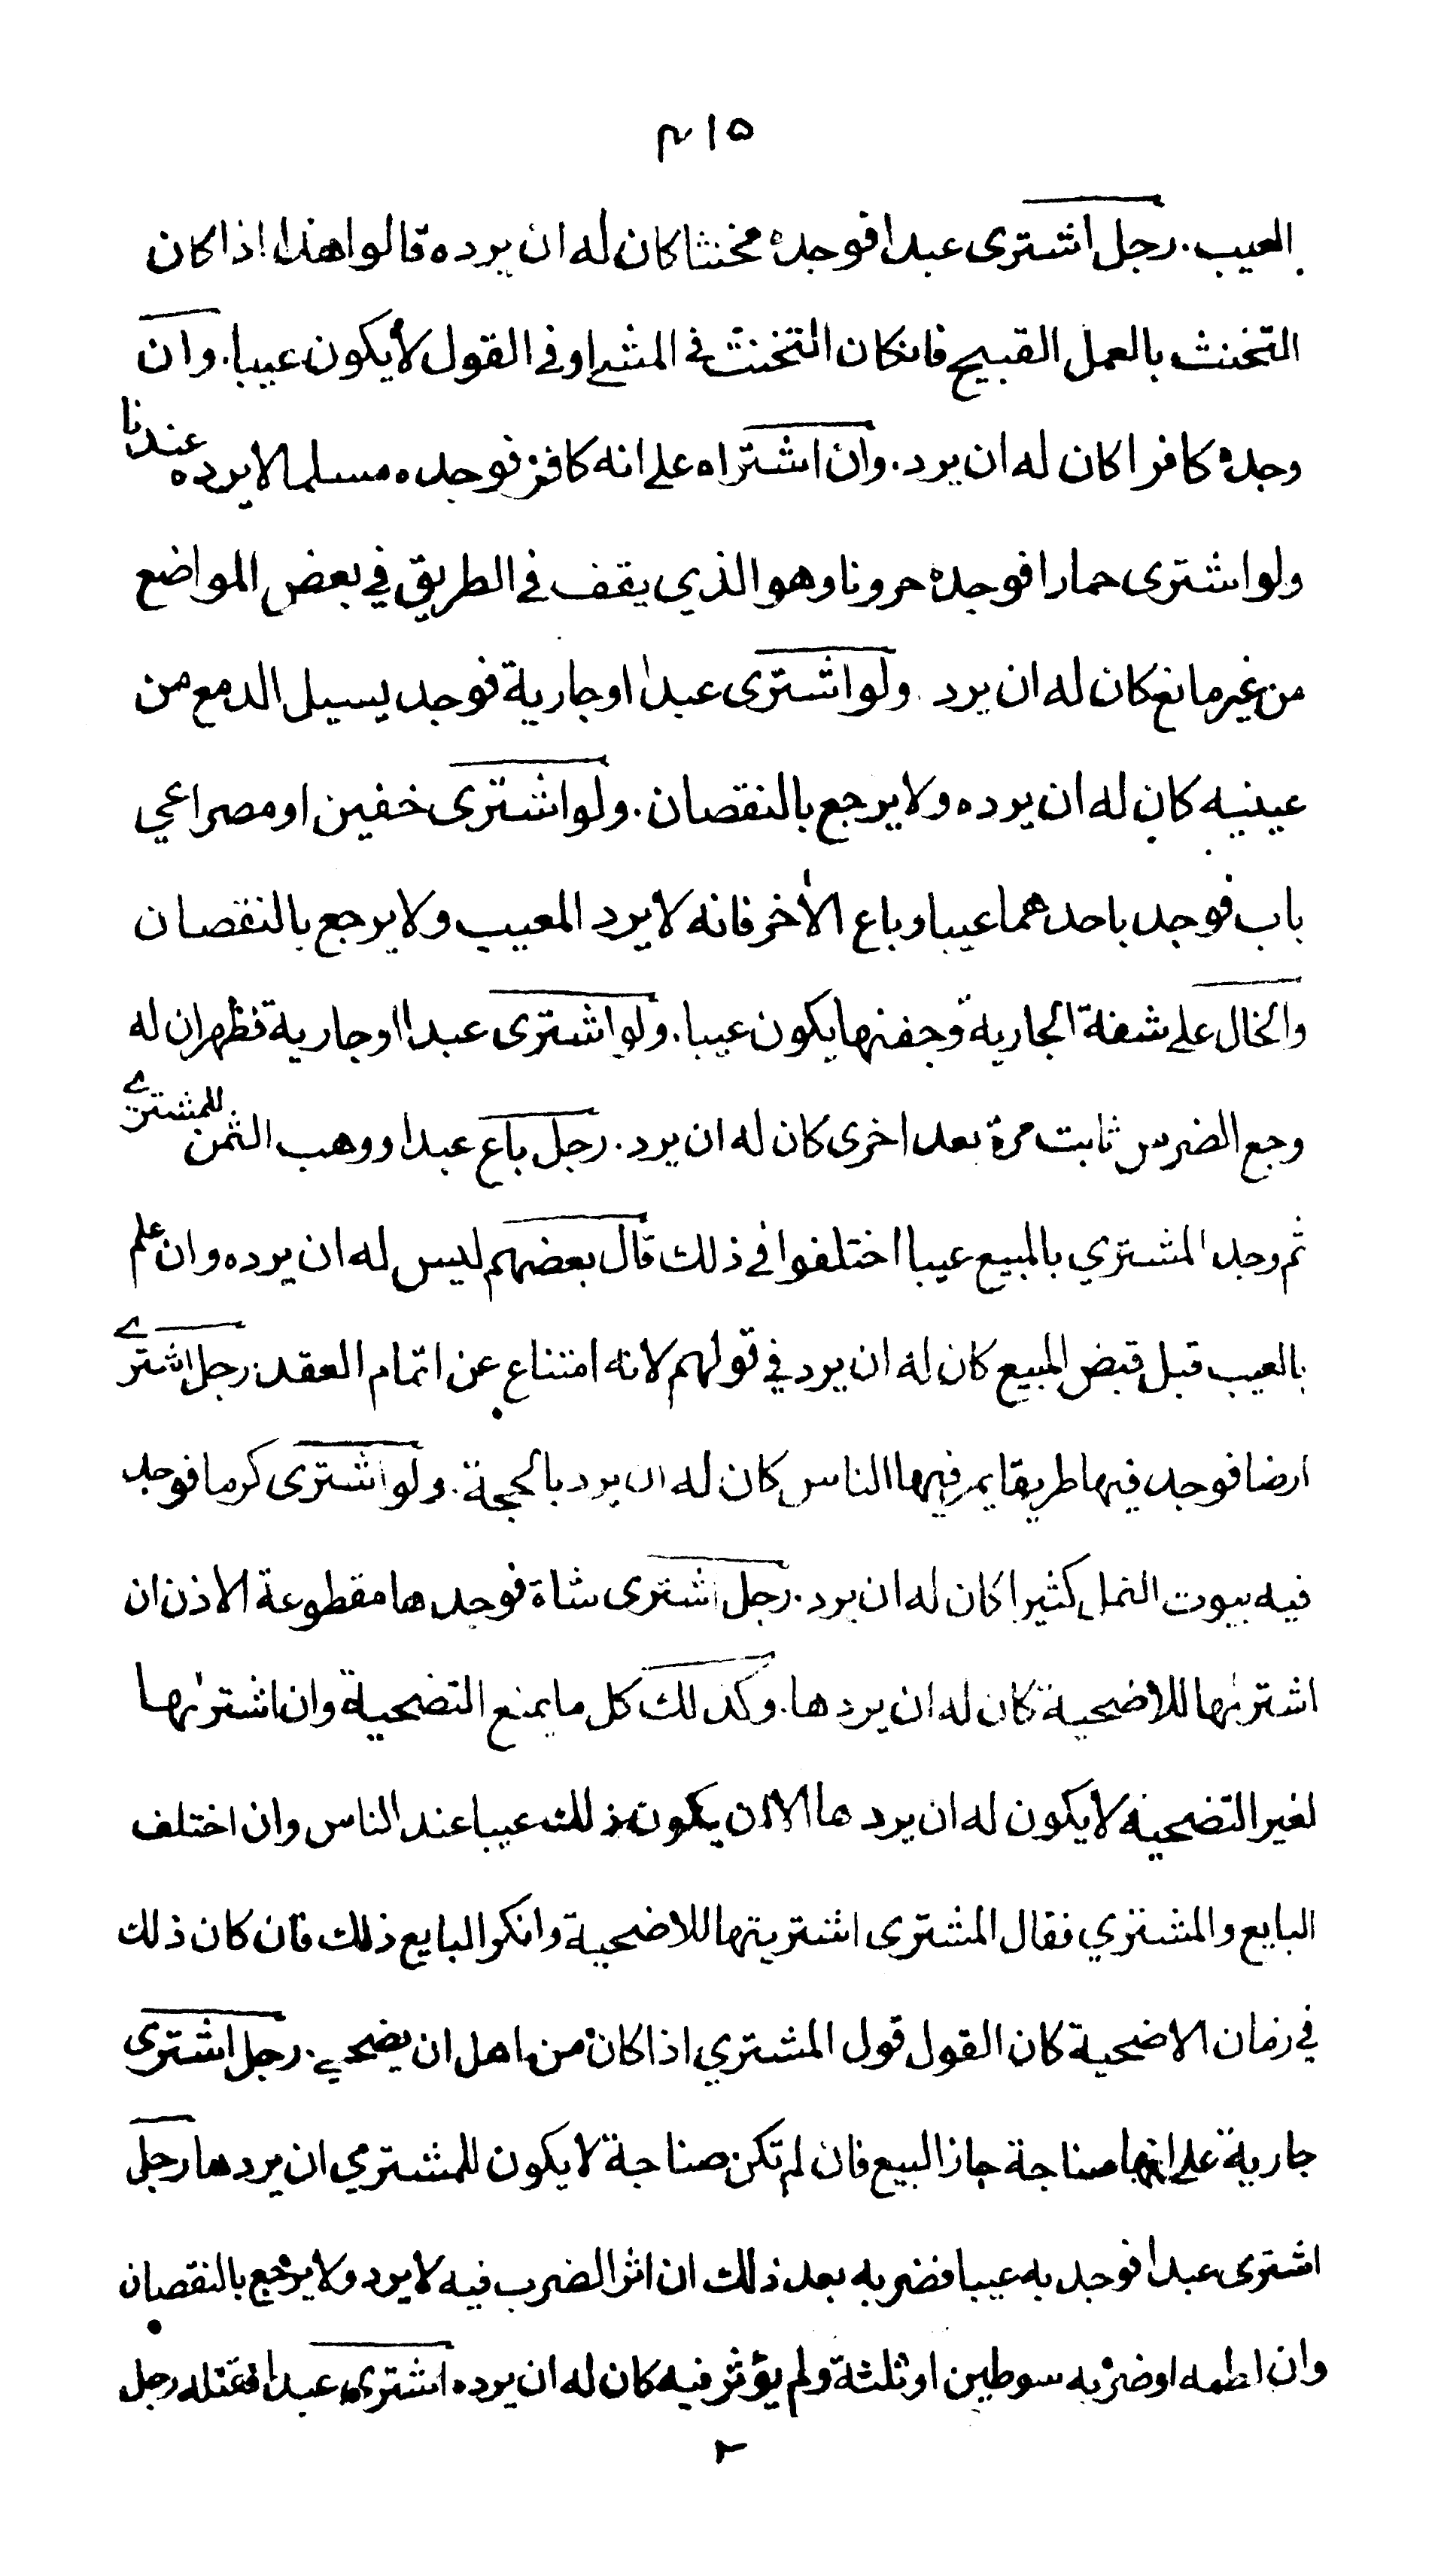 ٤١٥
العيب. رجل اشترى عبدا فوجده مخنثا كان له ان يرده قالوا هذا اذا كان
التخنث بالعمل القبيح فانكان التخنث في المشي او في القول لا يكون عيبا. وان
وجده كافرا كان له ان يرد. وان اشتراه على انه كافر فوجده مسلما لا يرده عندنا
ولو اشترى حمارا فوجده حرونا وهو الذي يقف في الطريق في بعض المواضع
من غير مانع كان له ان يرد. ولو اشترى عبدا او جارية فوجد يسيل الدمع من
عينيه كان له ان يرده ولا يرجع بالنقصان. ولو اشترى خفين او مصراعي
باب فوجد باحدهما عيبا وباع الاخر فانه لا يرد المعيب ولا يرجع بالنقصان
والخال على شفة الجارية وجفنها يكون عيبا. ولو اشترى عبدا او جارية فظهر ان له
وجع الضرس ثابت مرة بعد اخرى كان له ان يرد. رجل باع عبدا ووهب الثمن للمشتري
ثم وجد المشتري بالمبيع عيبا اختلفوا في ذلك قال بعضهم ليس له ان يرده وان علم
بالعيب قبل قبض المبيع كان له ان يرد في قولهم لانه امتناع عن اتمام العقد. رجل اشترى
ارضا فوجد فيها طريقا يمر فيها الناس كان له ان يرد بالحجة. ولو اشترى كرما فوجد
فيه بيوت النمل كثيرا كان له ان يرد. رجل اشترى شاة فوجدها مقطوعة الاذن ان
اشترىها للاضحية كان له ان يردها. وكذلك كل ما يمنع التضحية وان اشترىها
لغير التضحية لا يكون له ان يردها الا ان يكون ذلك عيبا عند الناس وان اختلف
البايع والمشتري فقال المشترى اشتريتها للاضحية وانكر البايع ذلك فان كان ذلك
في زمان الاضحية كان القول قول المشتري اذا كان من اهل ان يضحي. رجل اشترى
جارية على انها صناجة جاز البيع فان لم تكن صناجة لا يكون للمشتري ان يردها رجل
اشترى عبدا فوجد به عيبا فضربه بعد ذلك ان اثر الضرب فيه لا يرد ولا يرجع بالنقصان
وان لطمه او ضربه سوطين او ثلثة ولم يؤثر فيه كان له ان يرده اشترى عبدا فقتله رجل
٢